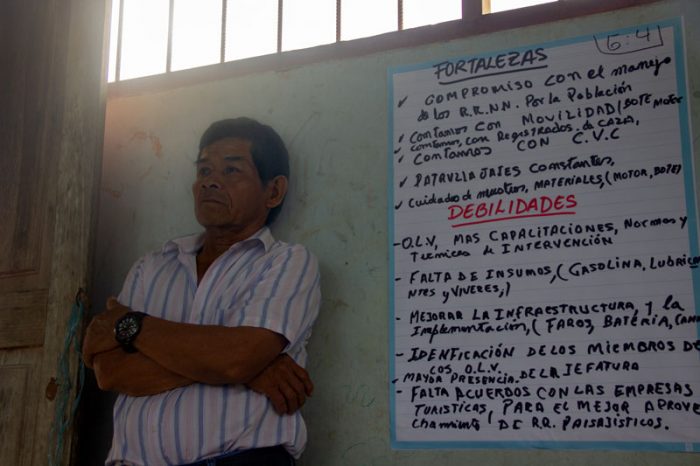 G:4
FORTALEZAS
✓ COMPROMISO CON EL Manejo
de los R.R.NN. Por la Población
✓ Contamos Con MOVILIDAD (BOTE MOTOR
✓ Contamos, con Registrados de CAZA,
✓ Contamos CON C.V.C
✓ PATRULLAJES Constantes,
✓ Cuidados de nuestros, MATERIALES, (MOTOR, BOTE)
DEBILIDADES
- O.L.V, MAS CAPACITACIONES, Normas y
Tecnicas de Intervención
- FALTA DE INSUMOS, (GASOLINA, LUBRICA
NTES y VIVERES,)
- MEJORAR LA INFRAESTRUCTURA, y la
Implementación, (FAROS, BATERIA, CAM
- IDENFICACIÓN DE LOS MIEMBROS DE
LOS O.L.V.
- MAYOR PRESENCIA DE LA JEFATURA
- FALTA ACUERDOS CON LAS EMPRESAS
TURISTICAS, PARA EL MEJOR APROVE
Chamiento DE RR. PAISAJISTICOS.